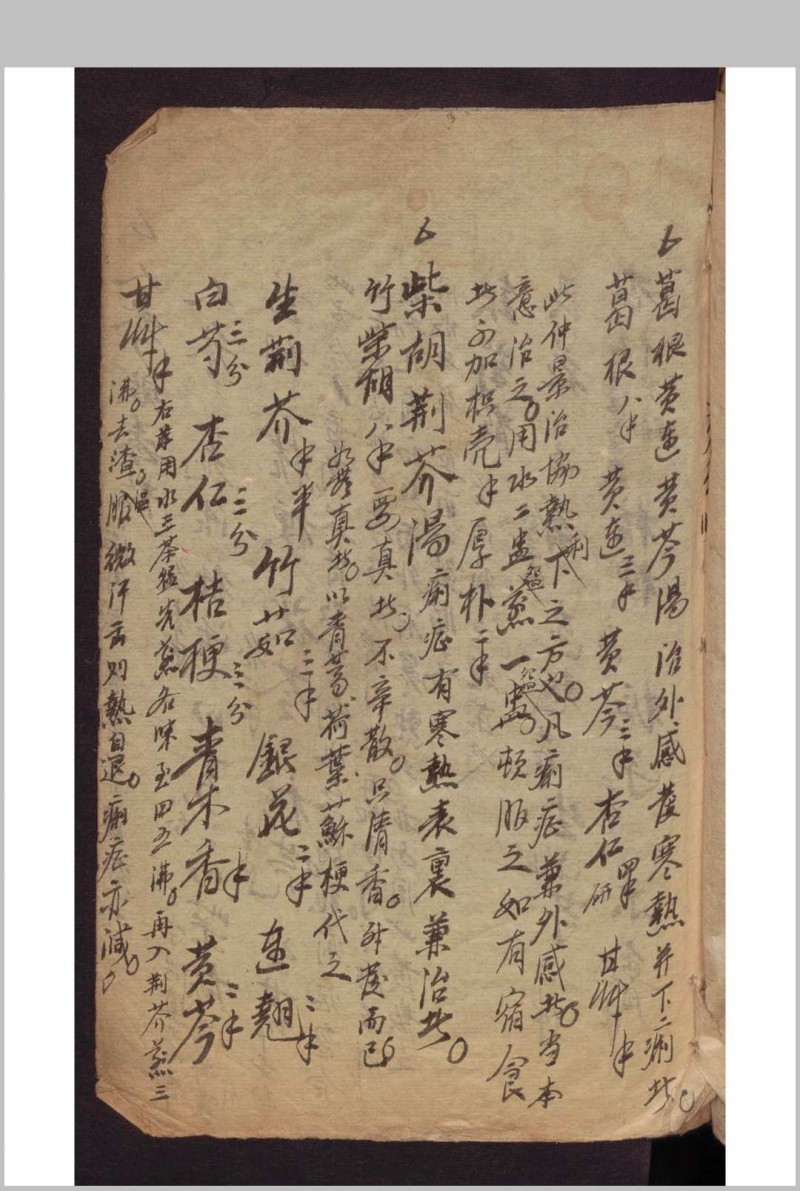 葛根黄連黄芩湯 治外感發寒熱并下痢者
葛根八 黄連三 黄芩三 杏仁研 甘艸
此仲景治協熱利下之方也凡痢症兼外感者當本
意治之用水二盅煎一盅頓服之如有宿食
者可加枳壳 厚朴二
柴胡荆芥湯 痢症有寒熱表裏兼治者
竹柴胡八 要真者不辛散只清香升發而已
如無真者以青蒿荷葉蘇梗代之
生荆芥 半 竹茹三 銀花二 連翹二
白芍三分 杏仁三分 桔梗三分 青木香 黄芩二
甘艸 右药用水三茶盅先煎各味至四五沸再入荆芥煎三
沸去渣温服微汗出則熱自退痢症亦減